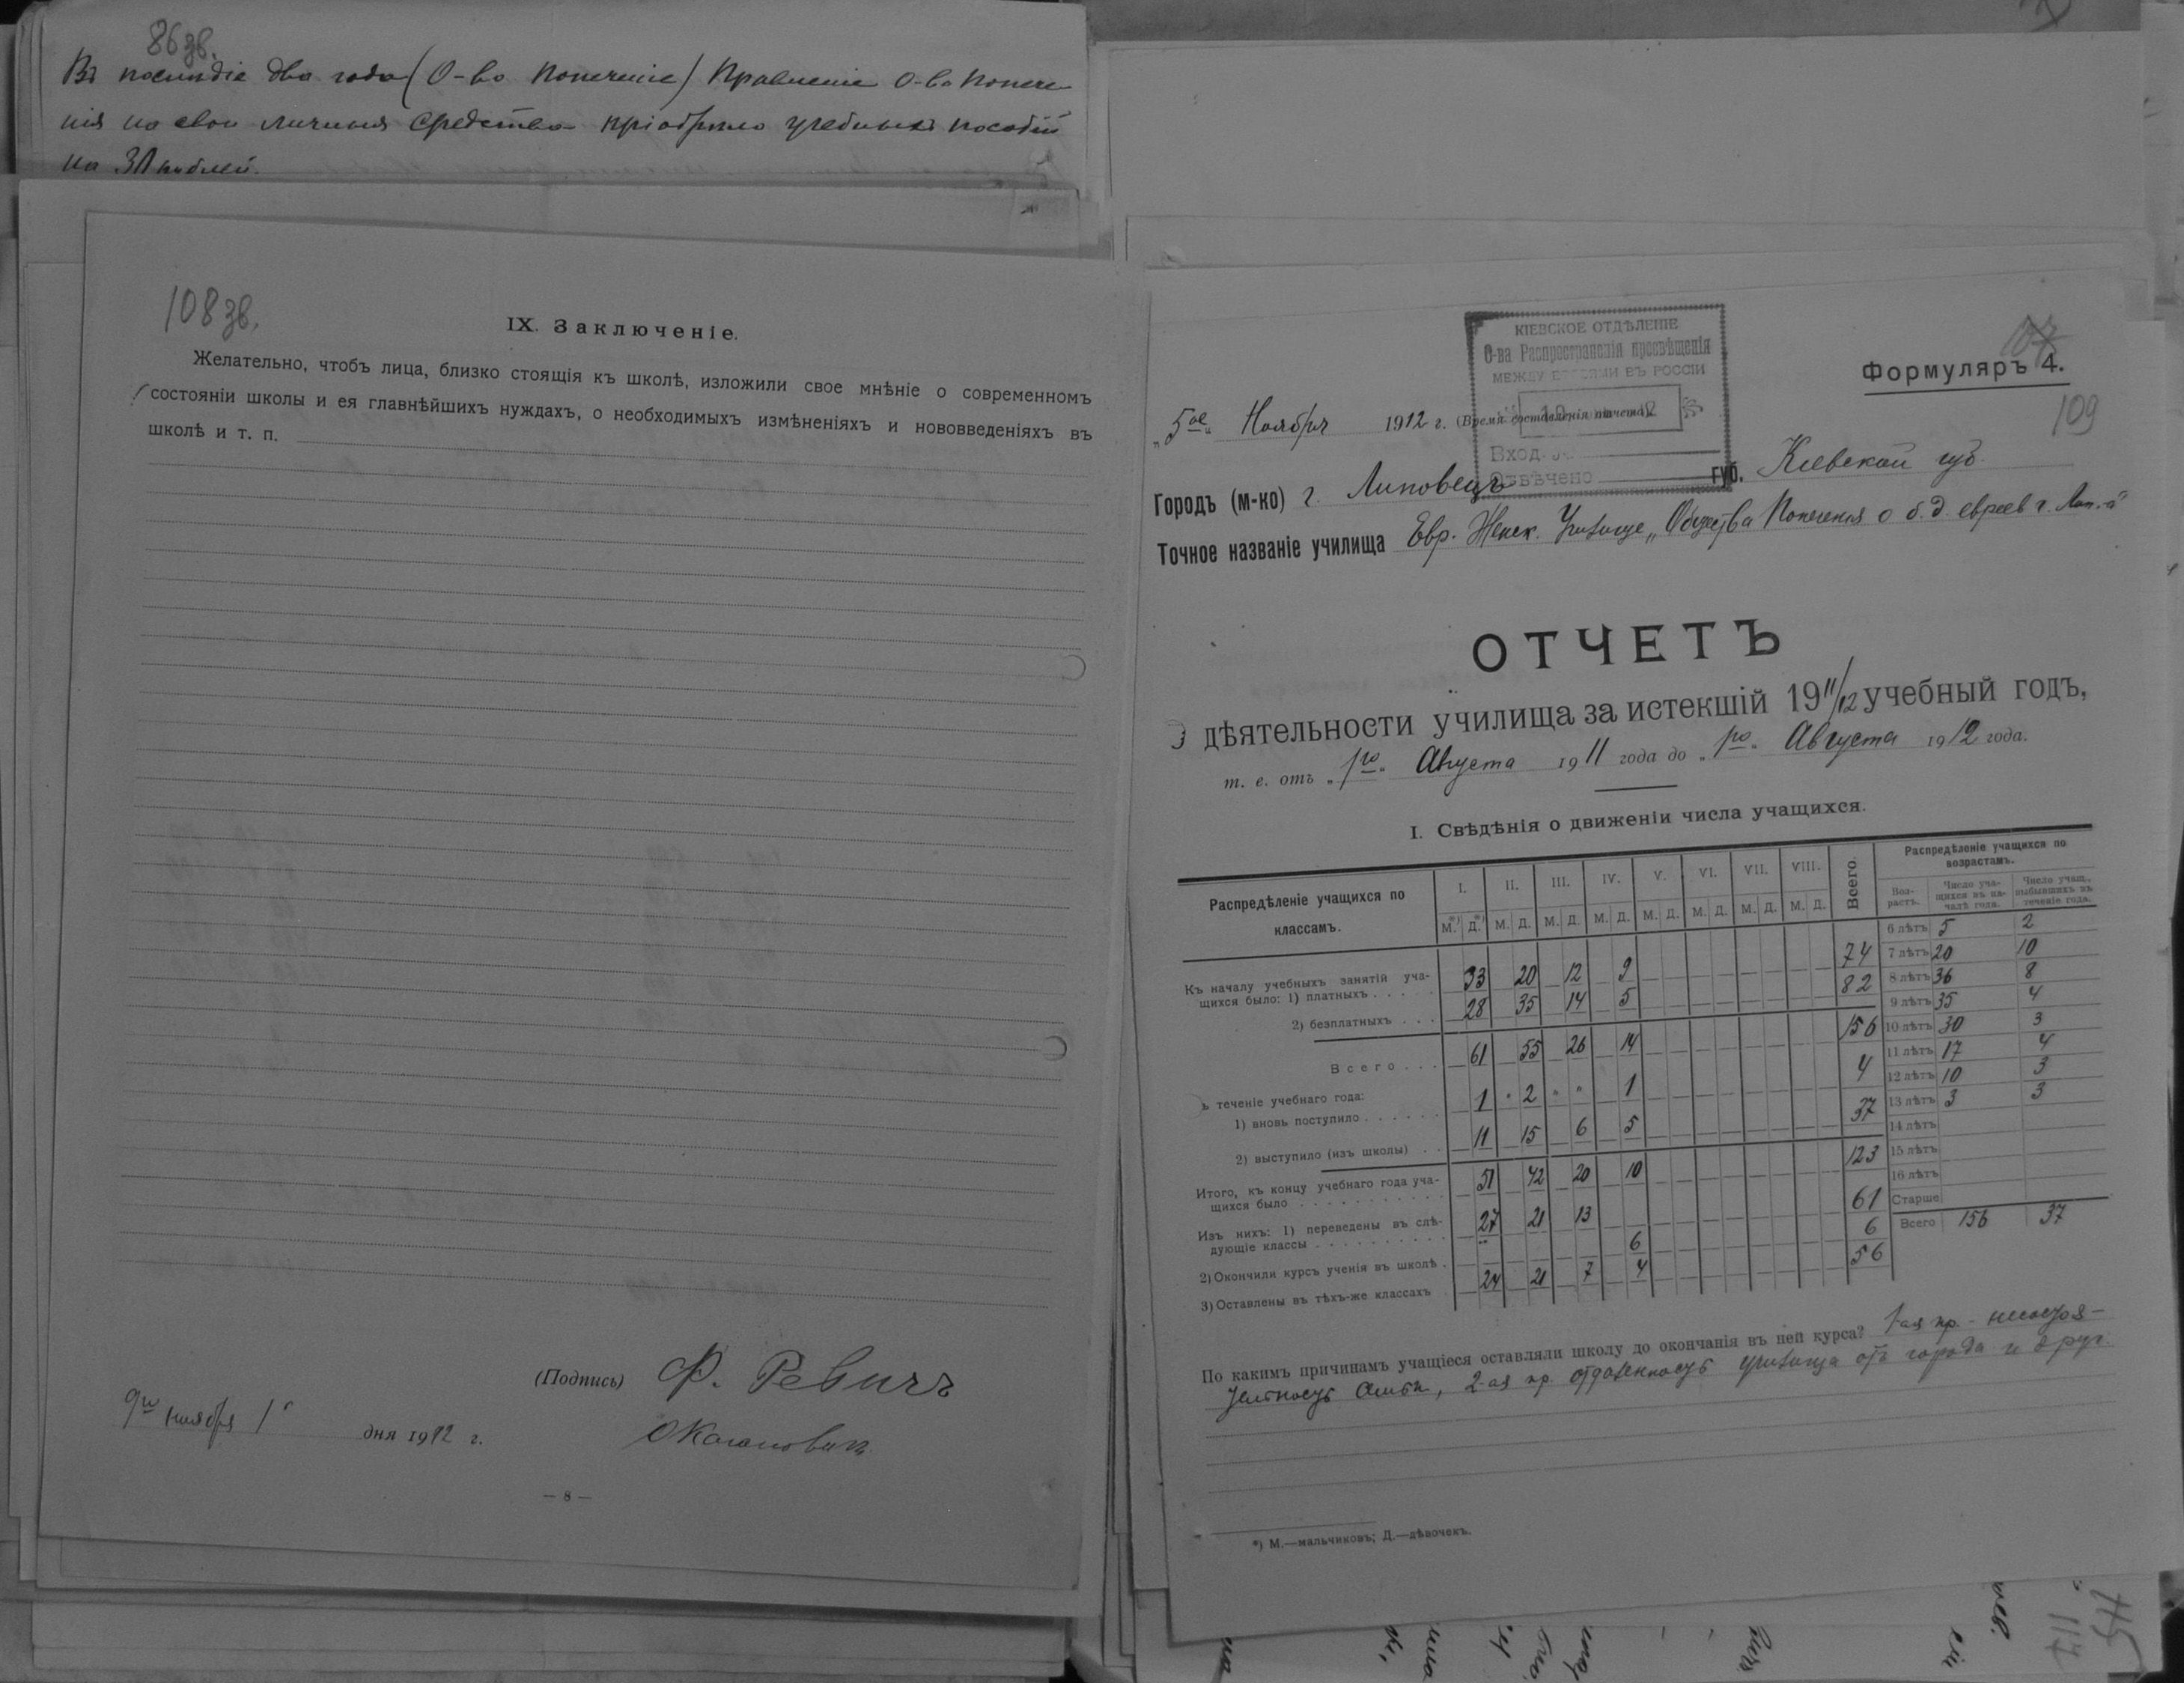 86 зв.
Въ послѣдніе два года (О-во Попеченіе) Правленіе О-ва Попече-
нія на свои личныя средства пріобрѣло учебныхъ пособій
на рублей.
108 зв.
IX. Заключеніе.
Желательно, чтобъ лица, близко стоящія къ школѣ, изложили свое мнѣніе о современномъ
состояніи школы и ея главнѣйшихъ нуждахъ, о необходимыхъ измѣненіяхъ и нововведеніяхъ въ
школѣ и т. п.
(Подпись) Ф. Ревичъ
ноября дня 1912 г.
О Кагановичъ
— 8 —
КІЕВСКОЕ ОТДѢЛЕНІЕ
О-ва Распространенія просвѣщенія
МЕЖДУ ЕВРЕЯМИ ВЪ РОССІИ
Вход.
Отвѣчено
107
Формуляръ 4.
109
„5ое„ Ноября 1912 г. (Время составленія отчета).
Городъ (м-ко) г. Липовецъ губ. Кіевской губ.
Точное названіе училища Евр. Женск. Училище „Общества Попеченія о б. д. евреев г. Лип-а"
ОТЧЕТЪ
дѣятельности училища за истекшій 1911/12 учебный годъ,
т. е. отъ „1го„ Августа 1911 года до „1го„ Августа 1912 года.
I. Свѣдѣнія о движеніи числа учащихся.
Распредѣленіе учащихся по классамъ. I. II. III. IV. V. VI. VII. VIII. Всего.
М.*) Д.*) М. Д. М. Д. М. Д. М. Д. М. Д. М. Д. М. Д.
Къ началу учебныхъ занятій уча-
щихся было: 1) платныхъ . . . . . 33 20 12 9 74
2) безплатныхъ . . . 28 35 14 5 82
Всего . . . 61 55 26 14 156
ъ теченіе учебнаго года:
1) вновь поступило . . . . . . 1 " 2 " " 1 4
2) выступило (изъ школы) . . 11 15 6 5 37
Итого, къ концу учебнаго года уча-
щихся было . . . . . . . . . . . 51 42 20 10 123
Изъ нихъ: 1) переведены въ слѣ-
дующіе классы . . . . . . . . . . 27 21 13 61
2) Окончили курсъ ученія въ школѣ . 6 6
3) Оставлены въ тѣхъ-же классахъ 24 21 7 4 56
Распредѣленіе учащихся по
возрастамъ.
Воз-
растъ. Число уча-
щихся въ на-
чалѣ года. Число учащ.,
выбывшихъ въ
теченіе года.
6 лѣтъ 5 2
7 лѣтъ 20 10
8 лѣтъ 36 8
9 лѣтъ 35 4
10 лѣтъ 30 3
11 лѣтъ 17 4
12 лѣтъ 10 3
13 лѣтъ 3 3
14 лѣтъ
15 лѣтъ
16 лѣтъ
Старше
Всего 156 37
По какимъ причинамъ учащіеся оставляли школу до окончанія въ ней курса? 1-ая пр. - несостоя-
тельность 2-ая пр. отдаленность училища отъ города и друг.
*) М.—мальчиковъ; Д.—дѣвочекъ.
117